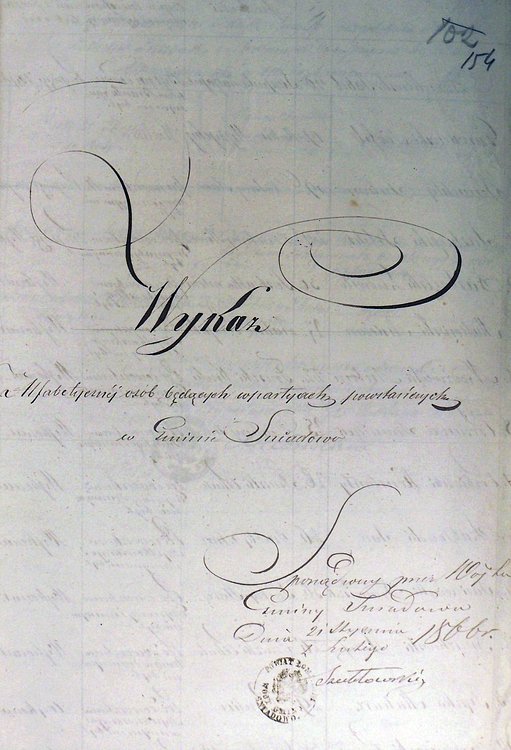 102
154
Wykaz
Alfabetyczny osób będących w partyach powstańczych
w Gminie Śniadowo
Sporządzony przez Wójta
Gminy Śniadowo
Dnia 21 Stycznia 1866 r.
Lutego
POWIAT ŁOM
WÓJT GMINY
ŚNIADOWO